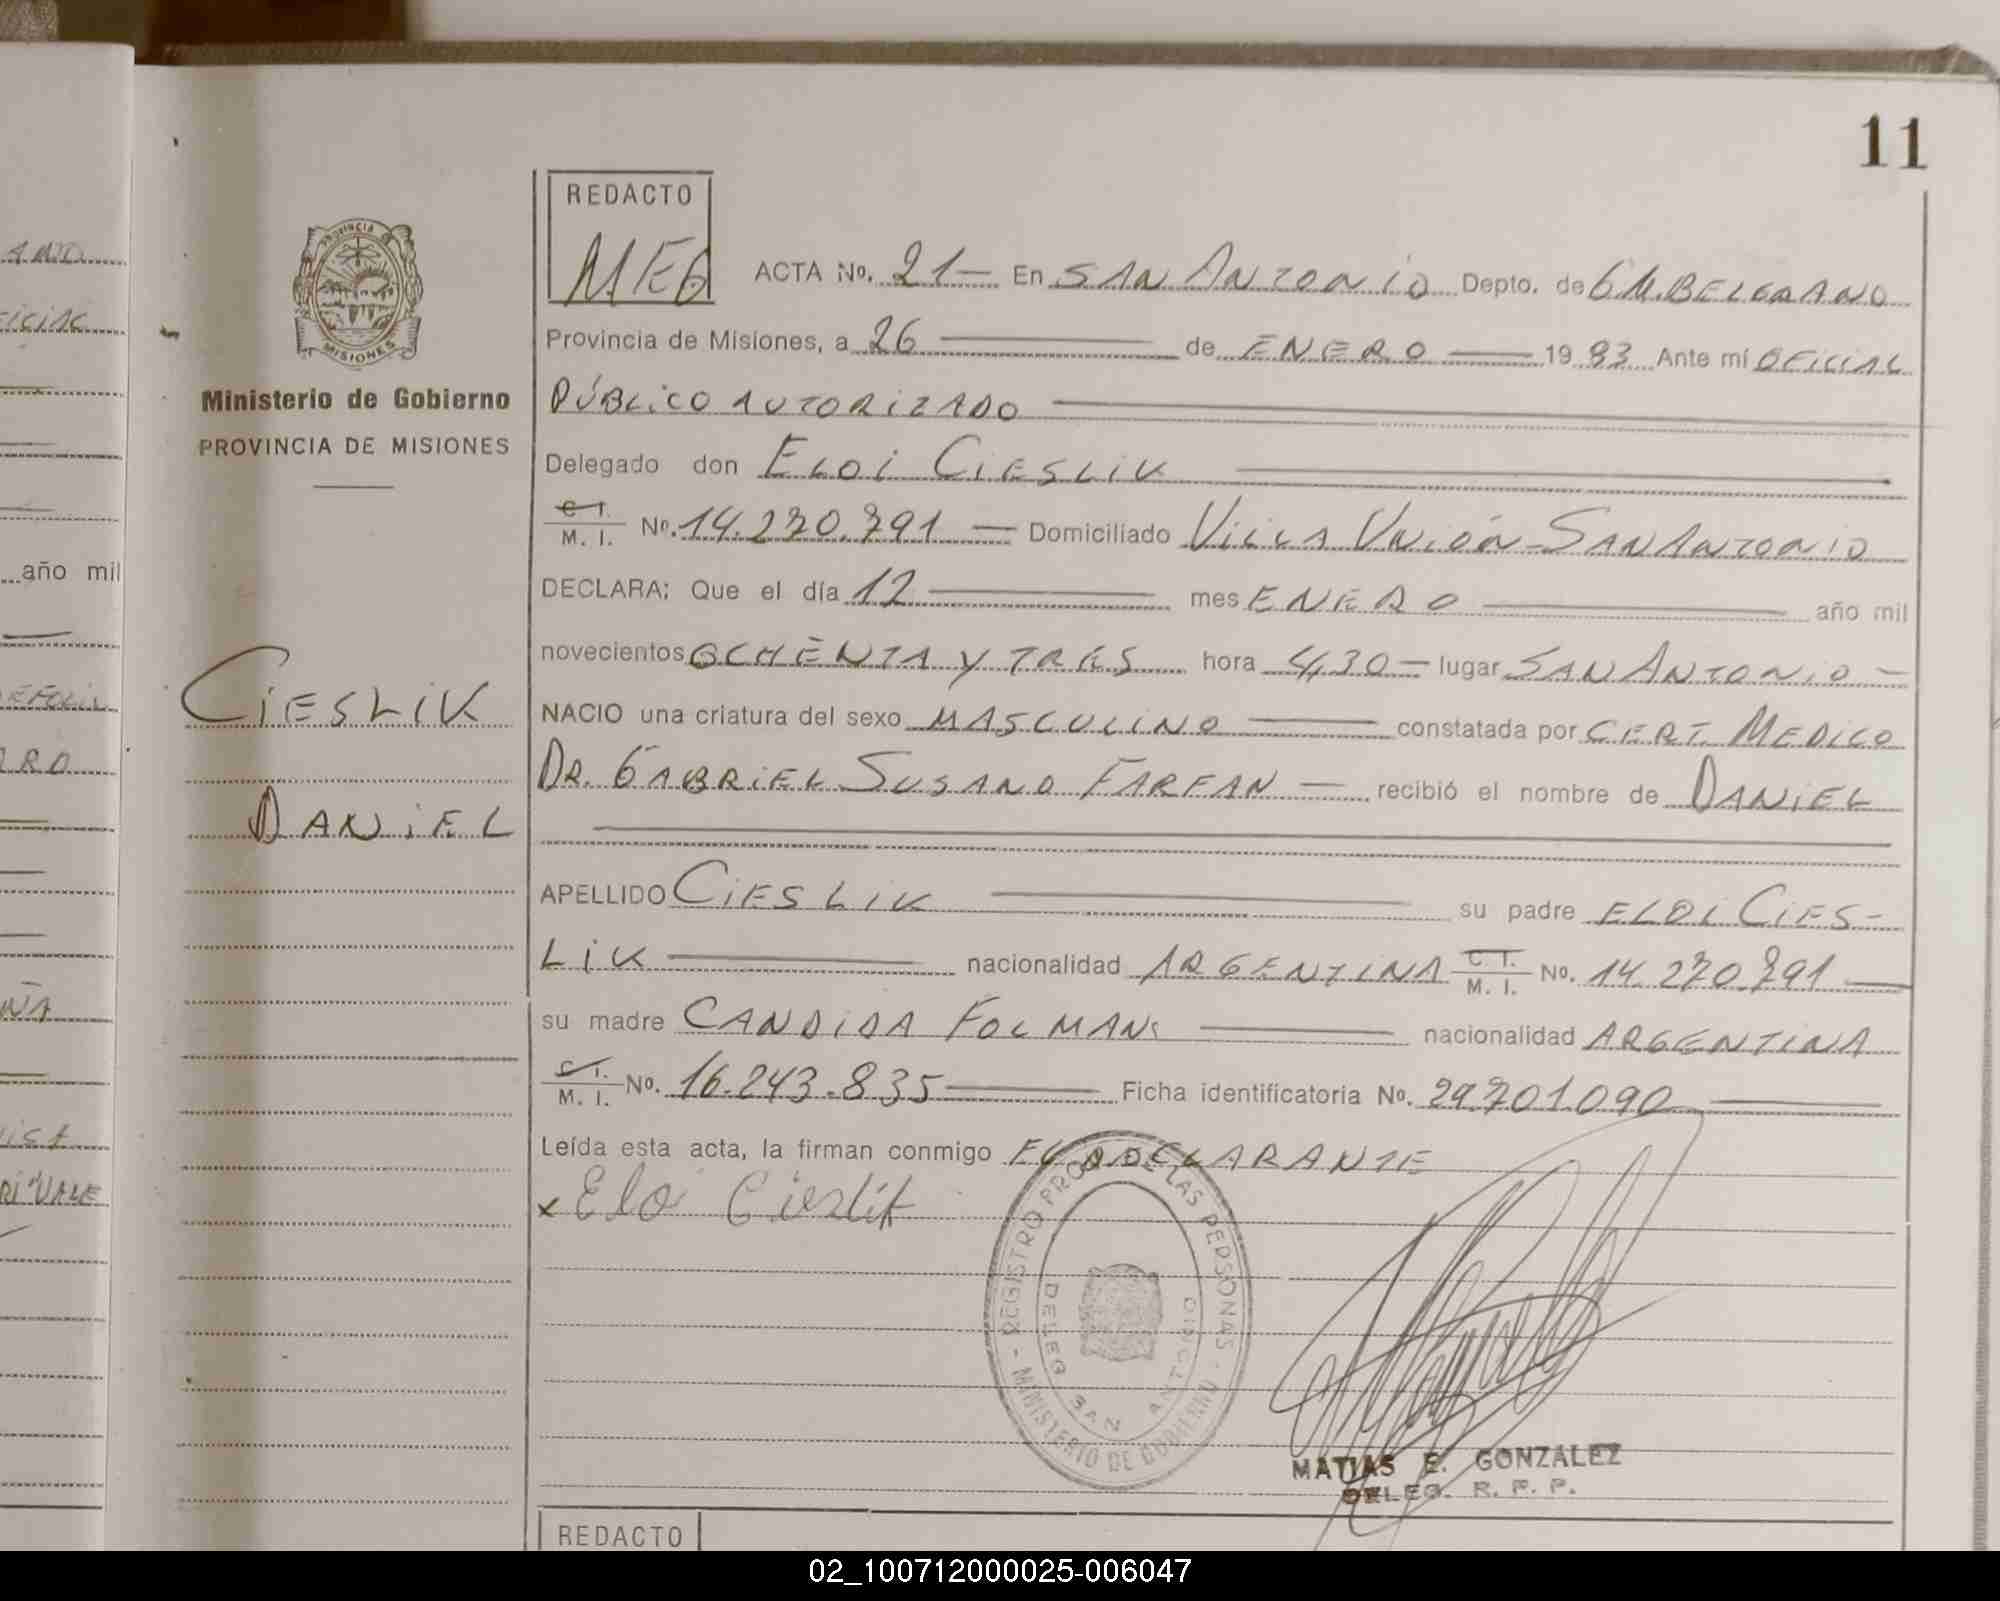 11
REDACTO
MEG
ACTA No. 21 En SAN ANTONIO Depto. de GM.BELGRANO
Provincia de Misiones, a 26 de ENERO 1983 Ante mí OFICIAL
PÚBLICO AUTORIZADO
Delegado don ELOI CIESLIK
C. I. M. I. No. 14.270.791 Domiciliado VILLA UNIÓN-SAN ANTONIO
DECLARA: Que el día 12 mes ENERO año mil
novecientos OCHENTA Y TRES hora 4,30 lugar SAN ANTONIO
NACIO una criatura del sexo MASCULINO constatada por CERT. MEDICO
DR. GABRIEL SUSANO FARFAN recibió el nombre de DANIEL
APELLIDO CIESLIK su padre ELOI CIES-
LIK nacionalidad ARGENTINA C. I. M. I. No. 14.270.791
su madre CANDIDA FOLMAN nacionalidad ARGENTINA
C. I. M. I. No. 16.243.835 Ficha identificatoria No. 29.701.090
Leída esta acta, la firman conmigo EL DECLARANTE
x Elo Cieslik
REGISTRO PROV. DE LAS PERSONAS - MINISTERIO DE GOBIERNO -
DELEG SAN ANTONIO
MATIAS E. GONZALEZ
DELEG. R. P. P.
REDACTO
PROVINCIA
MISIONES
Ministerio de Gobierno
PROVINCIA DE MISIONES
CIESLIK
DANIEL
año mil
02_100712000025-006047